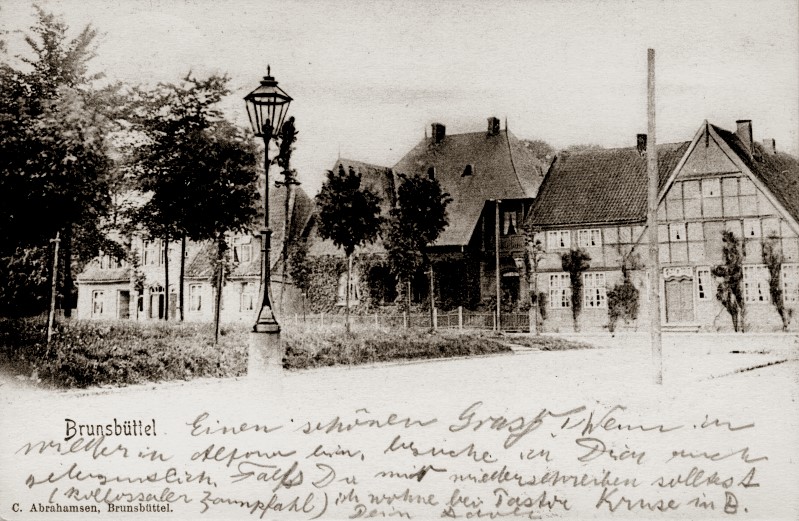 Brunsbüttel
Einen schönen Gruß! Wenn ich
wieder in Altona bin, besuche ich Dich auch
gelegentlich. Falls Du mir wiederschreiben solltest
(kollossaler Zaunpfahl) ich wohne bei Pastor Kruse in B.
Dein
C. Abrahamsen, Brunsbüttel.